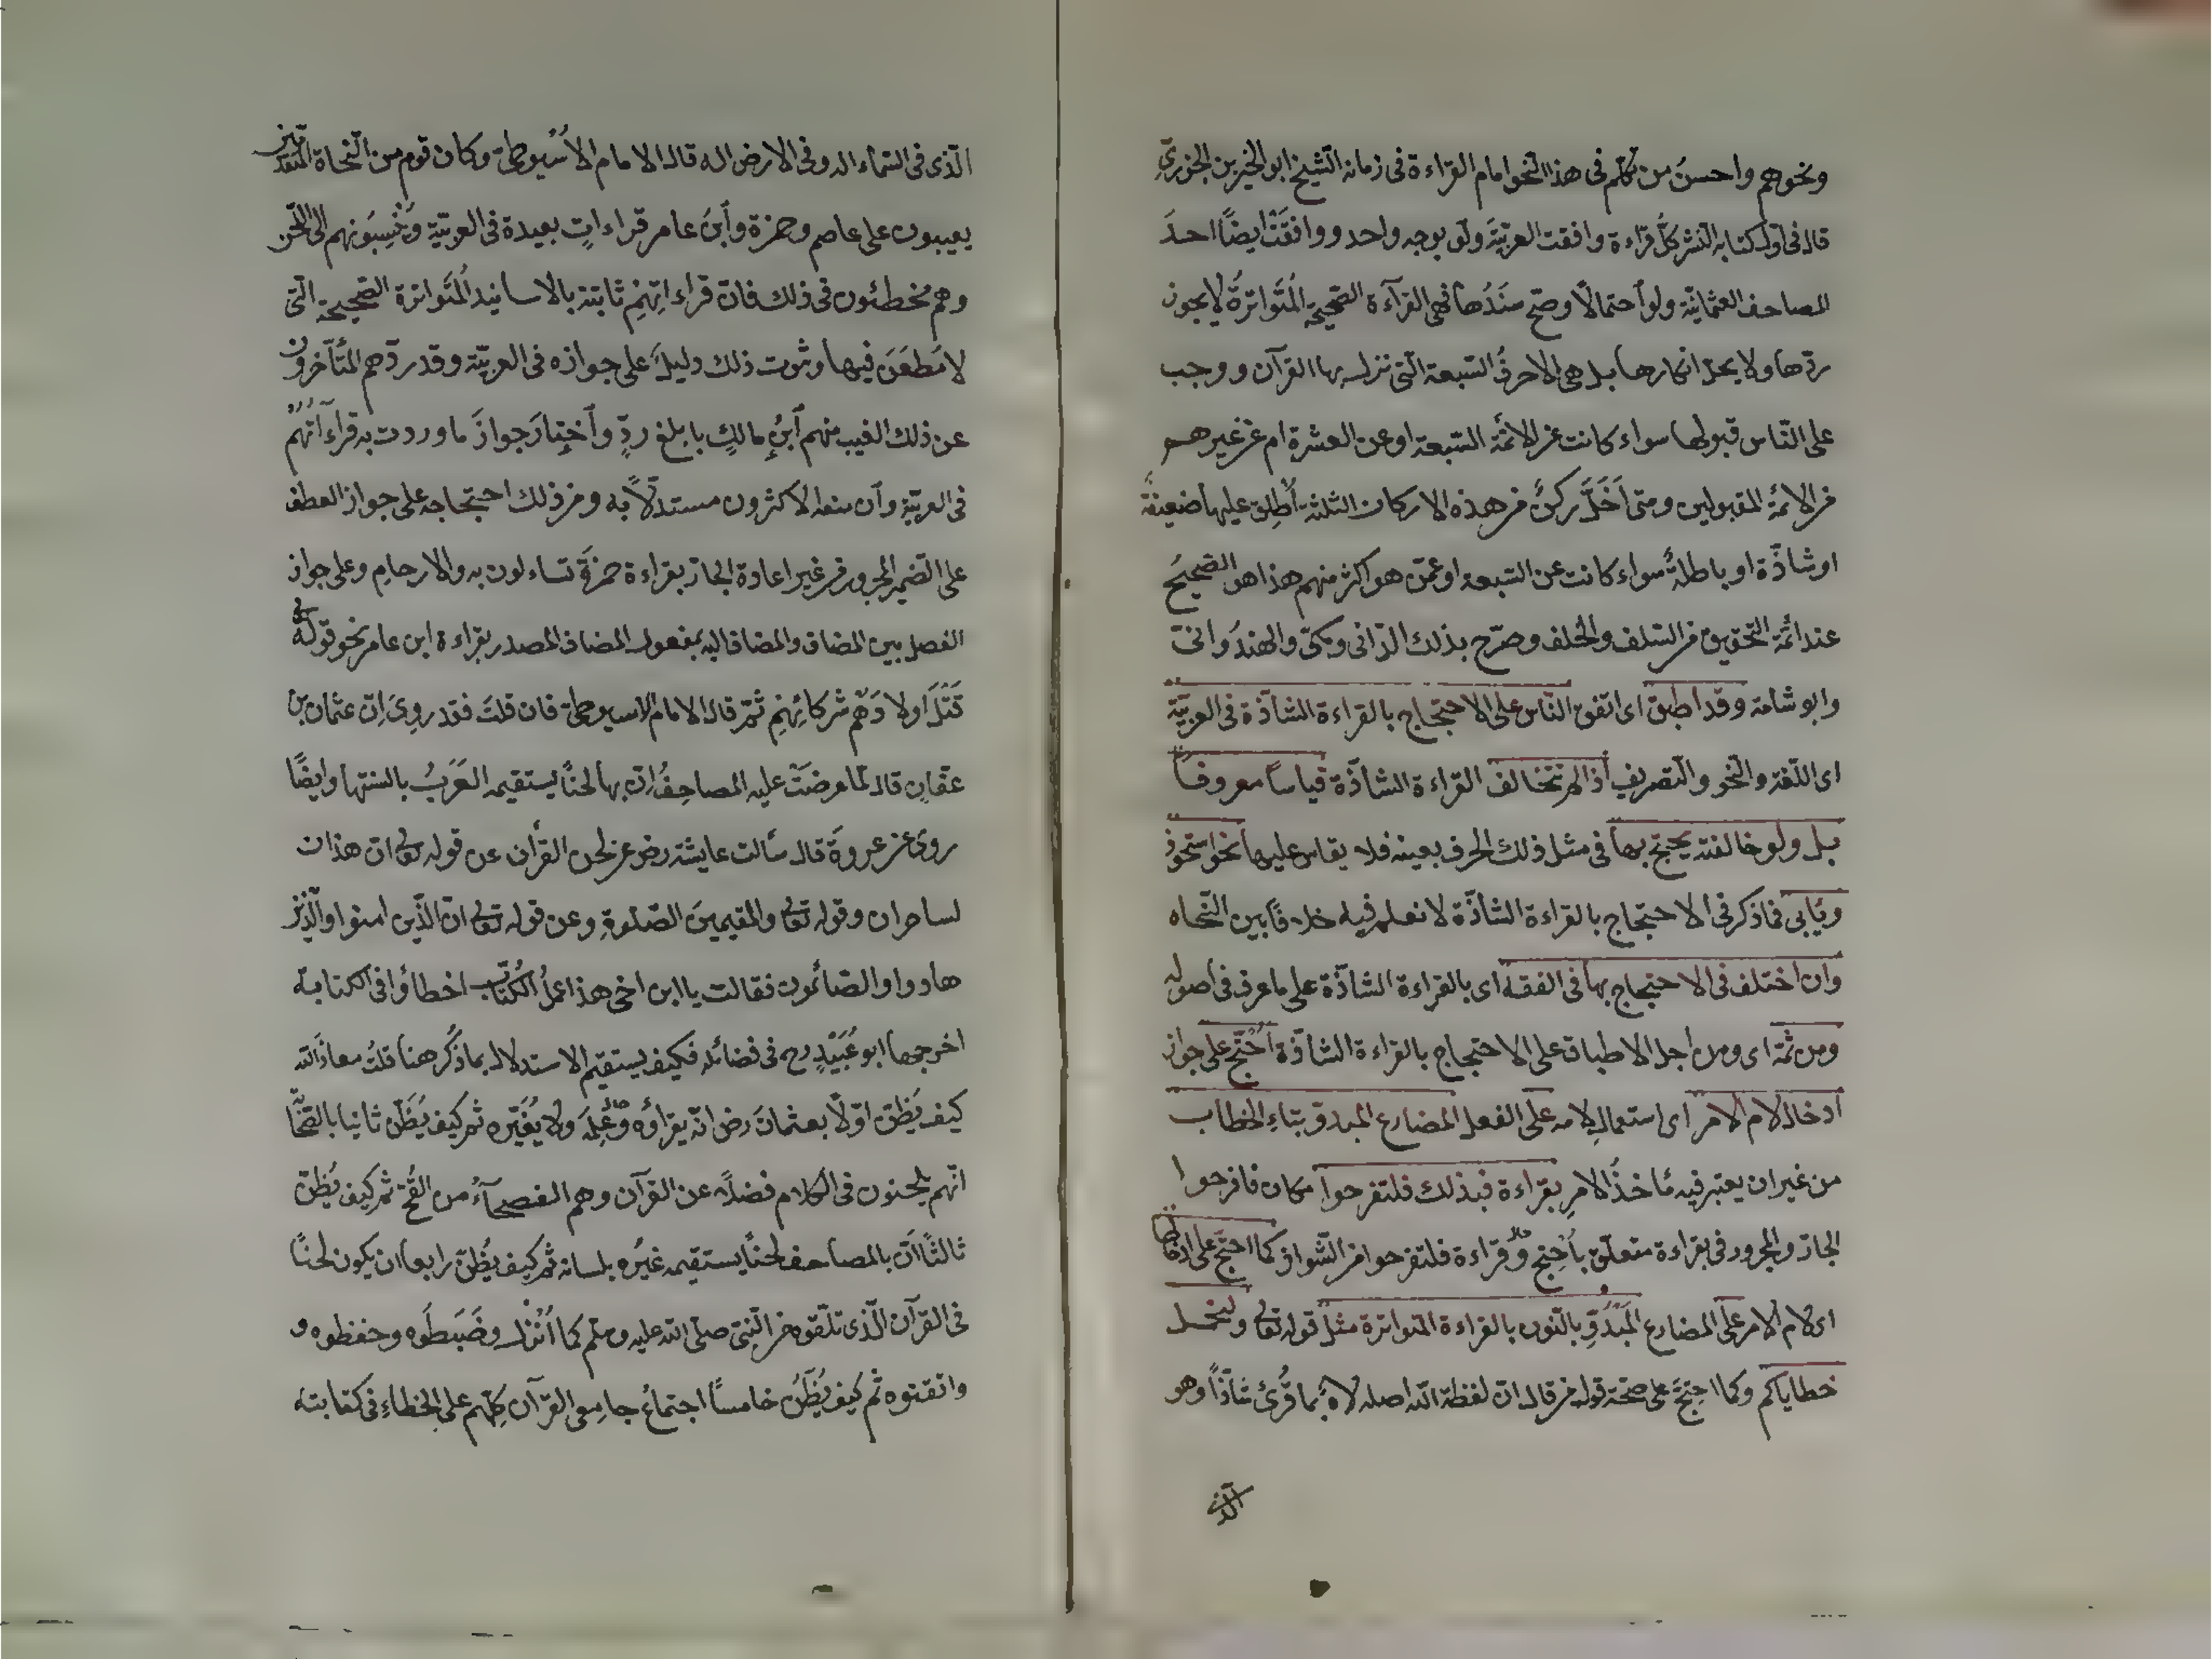 ونحوهم واحسنُ من تكلم فى هذا النحو امام القراءة فى زمانه الشيخ ابو الخير بن الجزرىّ
قال فى اوّل كتابه النشر كلّ قراءة وافقت العربيّةَ ولو بوجه واحد ووافقَتْ ايضًا احدَ
المصاحف العثمانيّة ولو احتمالًا وصحّ سَنَدُها فهى القرآءة الصّحيحة المُتَواترةُ لا يجوز
ردّها ولا يحل انكارها بل هى الاحرفُ السّبعة الّتى نزل بها القرآن ووجب
على النّاس قبولها سواء كانت عن الائمّة السّبعة او عن العشرة ام عن غيرهم
من الائمّة المقبولين ومتى اختلّ ركنٌ من هذه الاركان الثلثة أُطلِق عليها ضعيفةٌ
او شاذّة او باطلةٌ سواء كانت عن السّبعة او عمّن هو اكثر منهم هذا هو الصّحيحُ
عند ائمّة التّحقيق من السّلف والخلف وصرّح بذلك الدّانى ومكىّ والمهدَوانىّ
وابو شامة وقد اطبق اى اتفق النّاس على الاحتجاج بالقراءة الشاذّة فى العربيّة
اى اللّغة والنّحو والتّصريف اذا لم تخالف القراءة الشاذّة قياساً معروفاً
بل ولو خالفته يحتج بها فى مثل ذلك الحرف بعينه فلا يقاس عليها نحو استحوذ
ويأبى فما ذكر فى الاحتجاج بالقراءة الشاذّة لا نعلم فيه خلافًا بين النّحاه
وان اختلف فى الاحتجاج بها فى الفقه اى بالقراءة الشاذّة على ما عرف فى اصوله
ومن ثمّة اى ومن اجل الاطباق على الاحتجاج بالقراءة الشاذّة اُحْتُجَّ على جواز
ادخال لام الامر اى استعمالِ لامه على الفعل المضارع المبدوّ بتاءِ الخطاب
من غير ان يعتبر فيه مأخذُ الامرِ بقراءة فبذلك فلتفرحوا مكان فافرحوا
الجارّ والمجرور فى بقراءة متعلّق باُحتِجّ وقراءة فلتفرحوا من الشّواذ كما احتجّ على ادخالها
اى لام الامر على المضارع المَبْدُوِّ بالنّون بالقراءة المتواترة مثلُ قوله تعالى ولنحمل
خطاياكم وكما احتِجَّ على صحّة قوله من قال انّ لفظة اللّه اصله لاهٌ بما قُرِئَ شاذّاً وهو
الّذى
الّذى فى السّماء اله وفى الارض اله قال الامام الاُسْيوطىّ وكان قوم من النّحاة المتقدّمين
يعيبون على عاصم وحمزة وابن عامر قراءاتٍ بعيدة فى العربيّة ويَنْسِبونهم الى اللّحن
وهم مخطئون فى ذلك فانّ قراءاتِهِم ثابتة بالاسانيد المُتَواترة الصّحيحة الّتى
لا مَطعَنَ فيها وثبوت ذلك دليلٌ على جوازه فى العربيّة وقد ردّهم المتأخّرون
عن ذلك العيب منهم ابنُ مالكٍ بابلغ ردٍّ وأختارَ جوازَ ما وردت به قراءاتُهُم
فى العربيّة وان منعه الاكثرون مستدلّاً به ومن ذلك احتجاجه على جواز العطف
على الضمير المجرور من غير اعادة الجارّ بقراءة حمزةَ تساءلون به والارحامِ وعلى جواز
الفصل بين المضاف والمضاف اليه بمفعول المضاف المصدر بقراءة ابن عامر نحو قوله تعالى
قَتْلَ اولادَهم شركائِهِم ثمّ قال الامام الاسيوطىّ فان قلتَ فقد رُوِىَ انّ عثمان بن
عفّان قال لمّا عرضَتْ عليه المصاحِفُ انّ بها لحنًا يستقيمه العَرَبُ بالسنتها وايضًا
روى عن عروةَ قال سألت عايشة رض عن لحن القرأن عن قوله تعالى ان هذان
لساحران وقوله تعالى والمقيمينَ الصّلوةِ وعن قوله تعالى انّ الّذين امنوا والّذين
هادوا والصّائبون فقالت يا ابن اخى هذا عملُ الكُتّابِ اخطأوا فى الكتابة
اخرجها ابو عُبَيْدٍ رح فى فضائله فكيف يستقيم الاستدلال بما ذُكر هنا قلتُ معاذ اللّه
كيف يَظنّ اوّلًا بعثمانَ رض انّه يقرأوه وعُلِمَه ولا يُغَيّره ثم كيف يَظَنّ ثانيا بالصّحابة
انّهم يلحنون فى الكلام فضلًا عن القرآن وهم الفصحآءُ من القُحّ ثم كيف يُظنّ
ثالثًا انّ بالمصاحف لحنًا يستقيمه غيرُه بلسانه ثم كيف يُظنّ رابعا ان يكون لحنًا
فى القرآن الّذى تلقّوه من النّبىّ صلى اللّه عليه وسلم كما اُنْزِل وضَبَطُوه وحفظوه و
واتقنوه ثم كيف يُظَنُّ خامساً اجتماعُ جامِعى القرآن كلِّهم على الخطاءِ فى كتابته